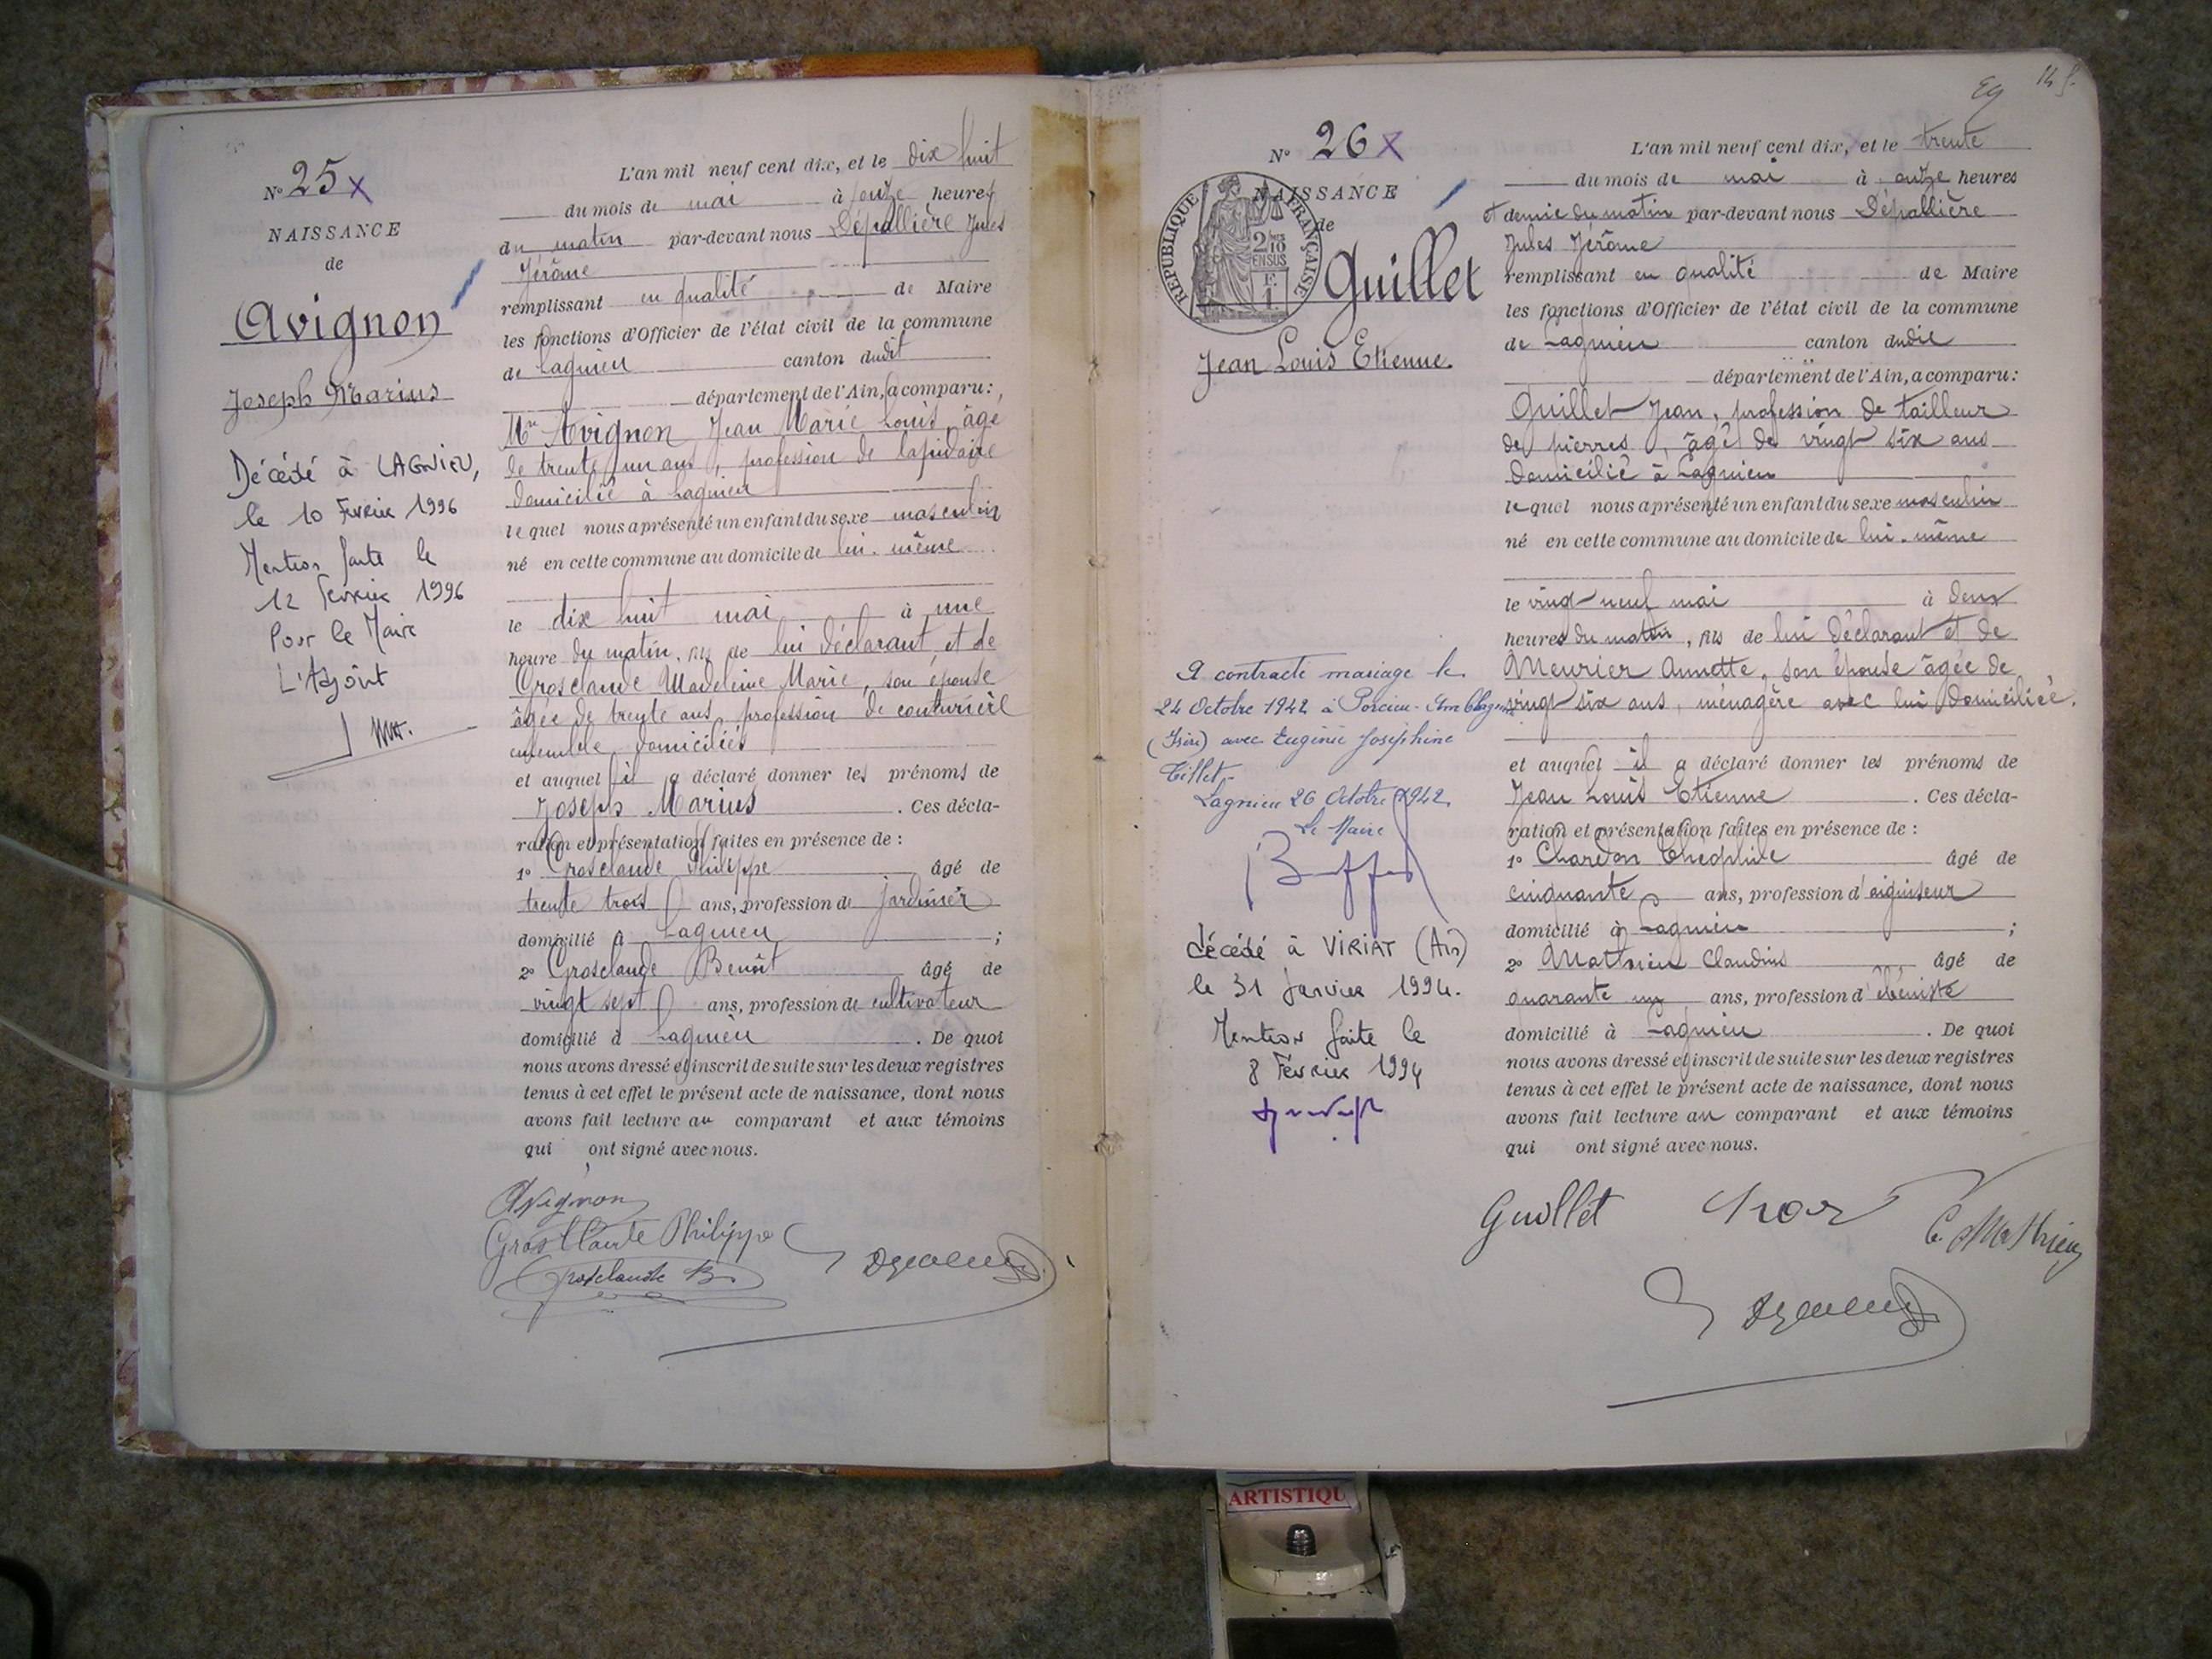 N° 25 X
NAISSANCE
de
Avignon
Joseph Marius
Décédé à LAGNIEU,
le 10 Février 1996
Mention faite le
12 Février 1996
Pour le Maire
L'Adjoint
L'an mil neuf cent dix, et le dix huit
du mois de mai à onze heures
du matin par-devant nous Dépallière Jules
Jérôme
remplissant en qualité de Maire
les fonctions d'Officier de l'état civil de la commune
de Lagnieu canton dudit
département de l'Ain, a comparu:
Mr Avignon Jean Marie Louis, âgé
de trente un ans, profession de lapidaire
domicilié à Lagnieu
lequel nous a présenté un enfant du sexe masculin
né en cette commune au domicile de lui-même
le dix huit mai à une
heure du matin, fils de lui déclarant, et de
Grosclaude Madeleine Marie, son épouse
âgée de trente ans, profession de couturière
ensemble domiciliés
et auquel il a déclaré donner les prénoms de
Joseph Marius. Ces décla-
ration et présentation faites en présence de :
1° Grosclaude Philippe âgé de
trente trois ans, profession de jardinier
domicilié à Lagnieu ;
2° Grosclaude Benoît âgé de
vingt sept ans, profession de cultivateur
domicilié à Lagnieu. De quoi
nous avons dressé et inscrit de suite sur les deux registres
tenus à cet effet le présent acte de naissance, dont nous
avons fait lecture au comparant et aux témoins
qui ont signé avec nous.
Avignon
Grosclaude Philippe
Grosclaude B
N° 26 X
NAISSANCE
de
RÉPUBLIQUE FRANÇAISE
2/10 EN SUS
Guillet
Jean Louis Etienne.
A contracté mariage le
24 Octobre 1942 à Porcieu-Amblagnieu
(Isère) avec Eugénie Joséphine
Tillet.
Lagnieu 26 Octobre 1942.
Le Maire
décédé à VIRIAT (Ain)
le 31 Janvier 1994.
Mention faite le
8 Février 1994
L'an mil neuf cent dix, et le trente
du mois de mai à onze heures
et demie du matin par-devant nous Dépallière
Jules Jérôme
remplissant en qualité de Maire
les fonctions d'Officier de l'état civil de la commune
de Lagnieu canton dudit
département de l'Ain, a comparu:
Guillet Jean, profession de tailleur
de pierres, âgé de vingt six ans
domicilié à Lagnieu
lequel nous a présenté un enfant du sexe masculin
né en cette commune au domicile de lui-même
le vingt-neuf mai à deux
heures du matin, fils de lui déclarant et de
Meurier Annette, son épouse âgée de
vingt six ans, ménagère avec lui domiciliée.
et auquel il a déclaré donner les prénoms de
Jean Louis Etienne. Ces décla-
ration et présentation faites en présence de :
1° Chardon Théophile âgé de
cinquante ans, profession d'aiguiseur
domicilié à Lagnieu ;
2° Mathieu Claudius âgé de
quarante un ans, profession d'ébéniste
domicilié à Lagnieu. De quoi
nous avons dressé et inscrit de suite sur les deux registres
tenus à cet effet le présent acte de naissance, dont nous
avons fait lecture au comparant et aux témoins
qui ont signé avec nous.
Guillet
C. Mathieu
ARTISTIQU